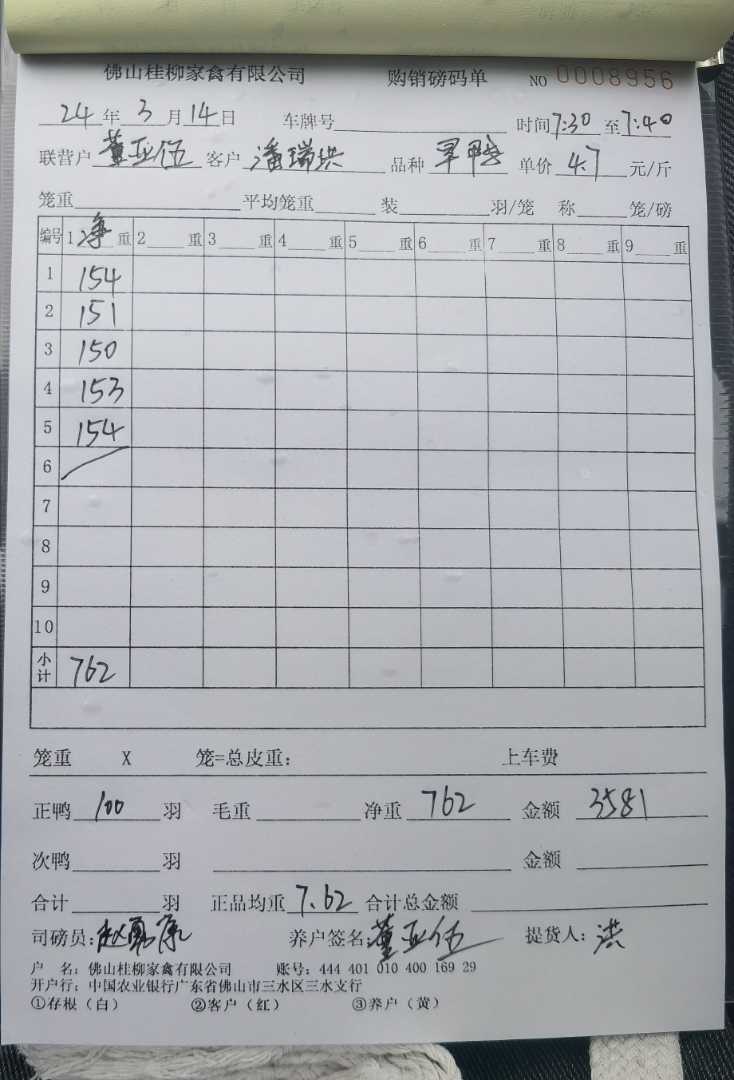 佛山桂柳家禽有限公司 购销磅码单 NO 0008956
24年3月14日 车牌号 时间7:30至7:40
联营户董亚伍 客户潘瑞洪 品种旱鸭 单价4.7元/斤
笼重 平均笼重 装 羽/笼 称 笼/磅
编号 1净重 2 重 3 重 4 重 5 重 6 重 7 重 8 重 9 重
1 154
2 151
3 150
4 153
5 154
6
7
8
9
10
小计 762
笼重 X 笼=总皮重： 上车费
正鸭100羽 毛重 净重762 金额3581
次鸭 羽 金额
合计 羽 正品均重7.62 合计总金额
司磅员： 养户签名：董亚伍 提货人：洪
户 名：佛山桂柳家禽有限公司 账号：444 401 010 400 169 29
开户行：中国农业银行广东省佛山市三水区三水支行
①存根（白） ②客户（红） ③养户（黄）